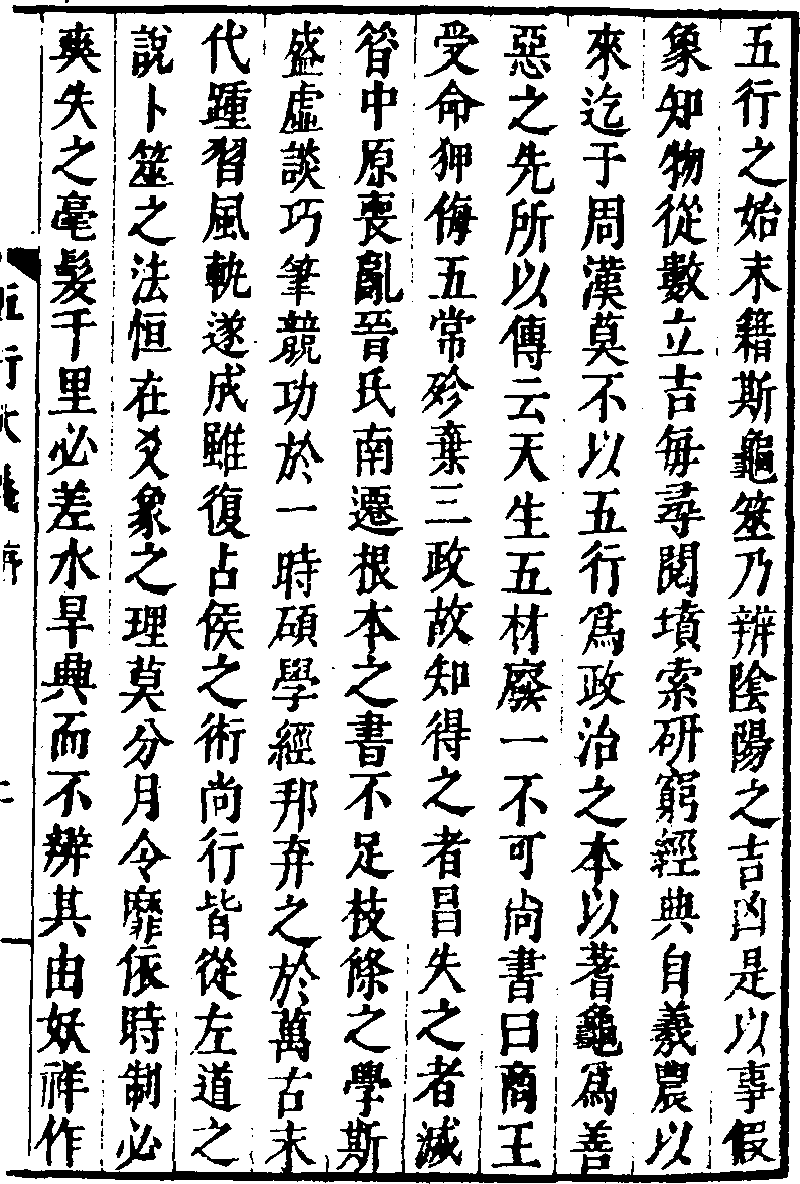 五行之始末籍斯龜筮乃辨陰陽之吉凶是以事假
象知物從數立吉每尋閱墳索研窮經典自羲農以
來迄于周漢莫不以五行爲政治之本以蓍龜爲善
惡之先所以傳云天生五材廢一不可尚書曰商王
受命狎侮五常殄棄三政故知得之者昌失之者滅
昝中原喪亂晉氏南遷根本之書不足枝條之學斯
盛虛談巧筆競功於一時碩學經邦弃之於萬古末
代踵習風軌遂成雖復占侯之術尚行皆從左道之
說卜筮之法恒在爻象之理莫分月令靡依時制必
爽失之毫髮千里必差水旱典而不辨其由妖祥作
五行大義序